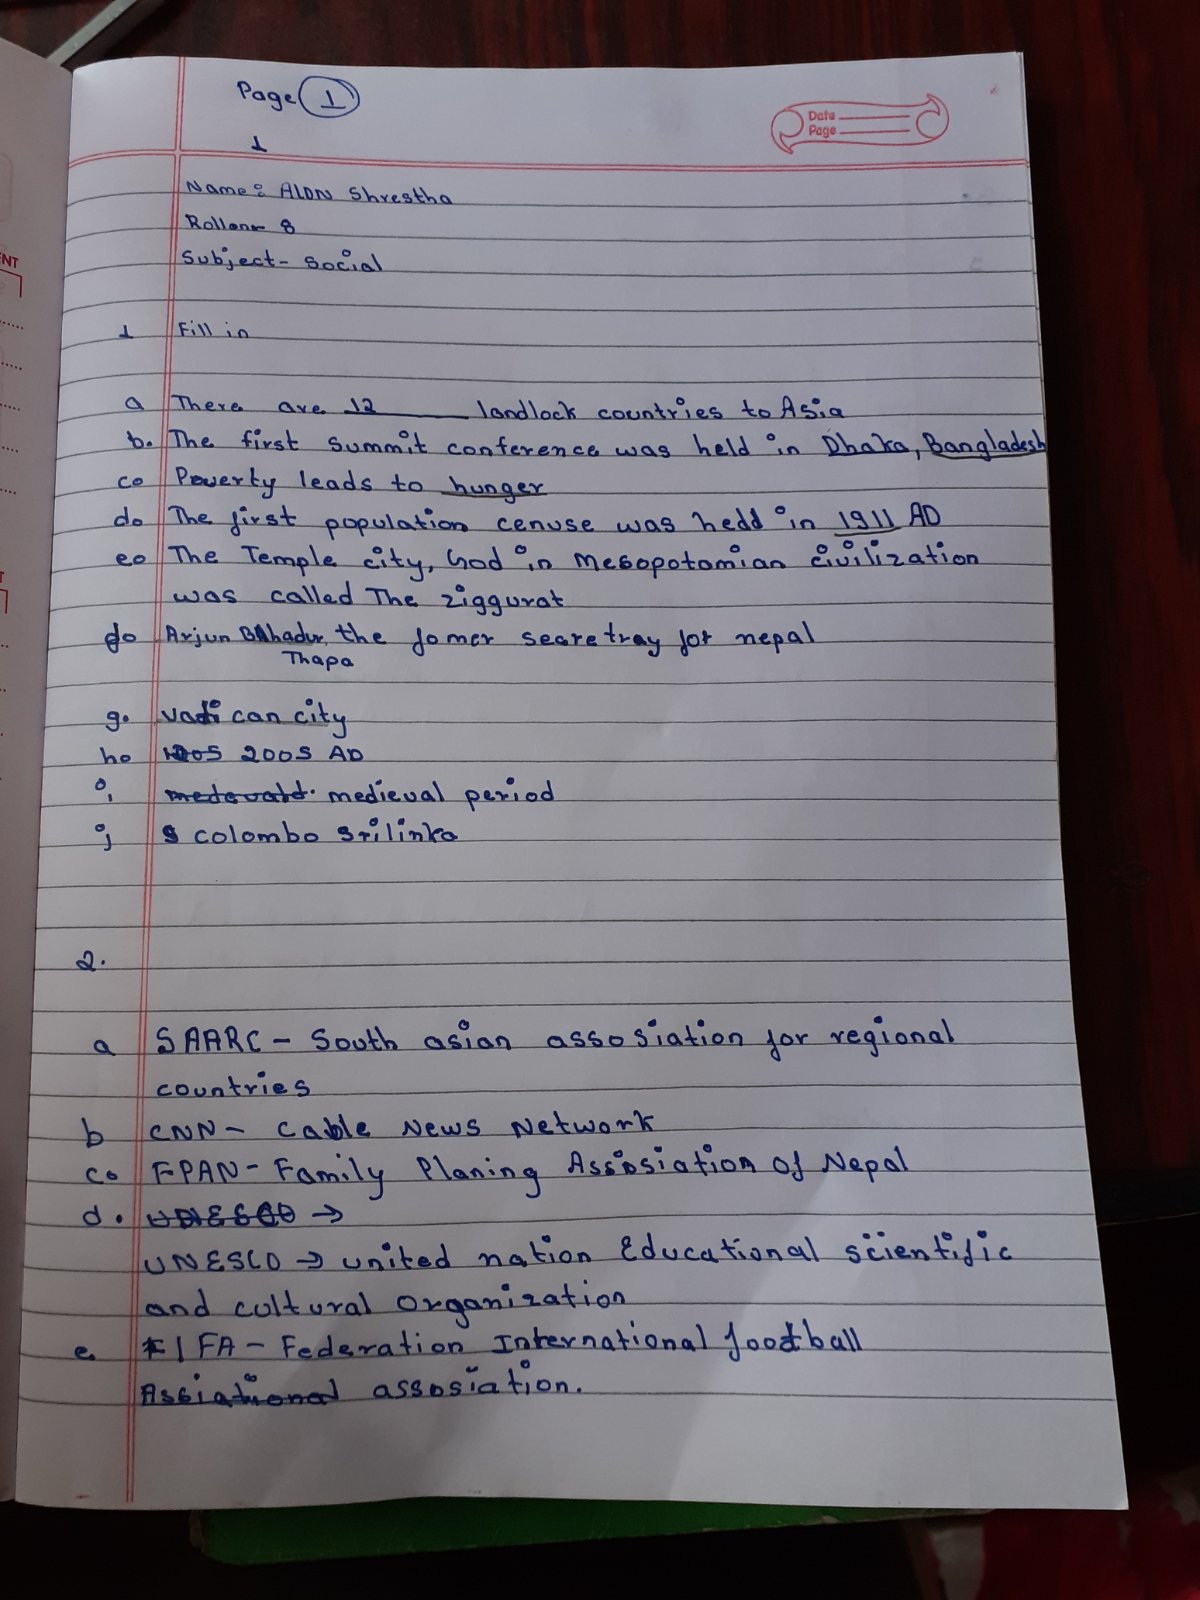 Page 1
1
Date
Page
Name: AIDN Shrestha
Rollono 8
Subject- Social
1 Fill in
a There are 12 landlock countries to Asia
b. The first summit conference was held in Dhaka, Bangladesh
c. Poverty leads to hunger
d. The first population cenuse was hedd in 1911 AD
e. The Temple city, God in Mesopotomian civilization
was called The ziggurat
f. Arjun BAhadur, the fomer searetray for nepal
Thapa
g. vadi can city
h. 2005 AD
i medieval period
j colombo srilinka
2.
a SAARC - South asian assosiation for regional
countries
b CNN - Cable News Network
c. FPAN - Family Planing Assosiation of Nepal
d. →
UNESCO → united nation Educational scientific
and cultural organization
e. FIFA - Federation International football
assosiation.
ENT